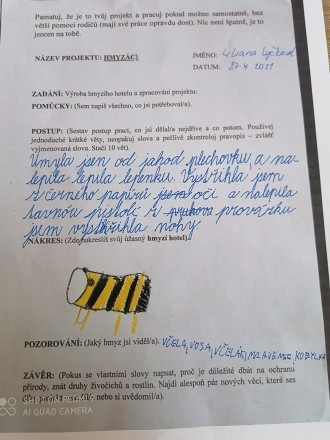 Pamatuj, že je to tvůj projekt a pracuj pokud možno samostatně, bez
větší pomoci rodičů (mají své práce opravdu dost). Nic není špatně, je to
jenom na tobě.
NÁZEV PROJEKTU: HMYZÁCI
JMÉNO: Liliana Lyčková
DATUM: 27.4 2021
ZADÁNÍ: Výroba hmyzího hotelu a zpracování projektu.
POMŮCKY: (Sem napiš všechno, co jsi potřeboval/a).
POSTUP: (Sestav postup prací, co jsi dělal/a nejdříve a co potom. Používej
jednoduché krátké věty, neopakuj slova a pečlivě zkontroluj pravopis – zvlášť
vyjmenovaná slova. Stačí 10 vět).
Umyla jsem od jahod plechovku a na-
lepila lepila lepenku. Vystřihla jsem
z černého papíru oči a nalepila
tavnou pistolí z provázku
jsem vystřihla nohy.
NÁKRES: (Zde nakreslíš svůj úžasný hmyzí hotel).
POZOROVÁNÍ: (Jaký hmyz jsi viděl/a). VČELA, VOSA, VČELÁK, MRAVENEC KOBYLKA
ZÁVĚR: (Pokus se vlastními slovy napsat, proč je důležité dbát na ochranu
přírody, znát druhy živočichů a rostlin. Najdi alespoň pár nových věcí, které ses
nebo si uvědomil/a).
AI QUAD CAMERA